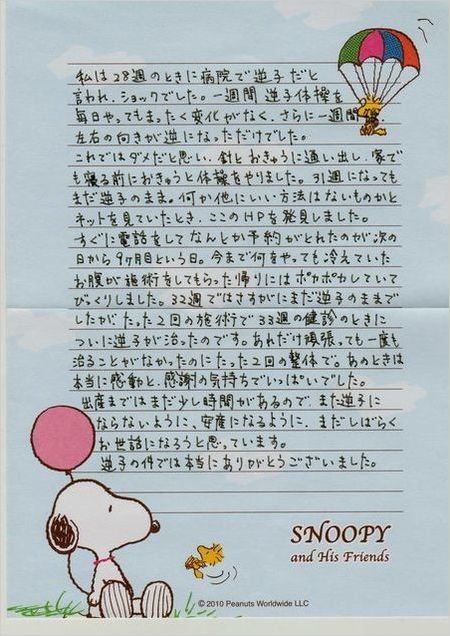 私は28週のときに病院で逆子だと
言われ、ショックでした。一週間逆子体操を
毎日やってもまったく変化がなく、さらに一週間
左右の向きが逆になっただけでした。
これではダメだと思い、針とおきゅうに通い出し、家で
も寝る前におきゅうと体操をやりました。31週になっても
まだ逆子のまま。何か他にいい方法はないものかと
ネットを見ていたとき、ここのHPを発見しました。
すぐに電話をしてなんとか予約がとれたのが次の
日から9ヶ月目という日。今まで何をやっても冷えていた
お腹が施術をしてもらった帰りにはポカポカしていて
びっくりしました。32週ではさすがにまだ逆子のままで
したがたった2回の施術で33週の健診のときに
ついに逆子が治ったのです。あれだけ頑張っても一度も
治ることがなかったのにたった2回の整体で。あのときは
本当に感動と、感謝の気持ちでいっぱいでした。
出産まではまだ少し時間があるので、また逆子に
ならないように、安産になるように、まだしばらく
お世話になろうと思っています。
逆子の件では本当にありがとうございました。
SNOOPY
and His Friends
© 2010 Peanuts Worldwide LLC